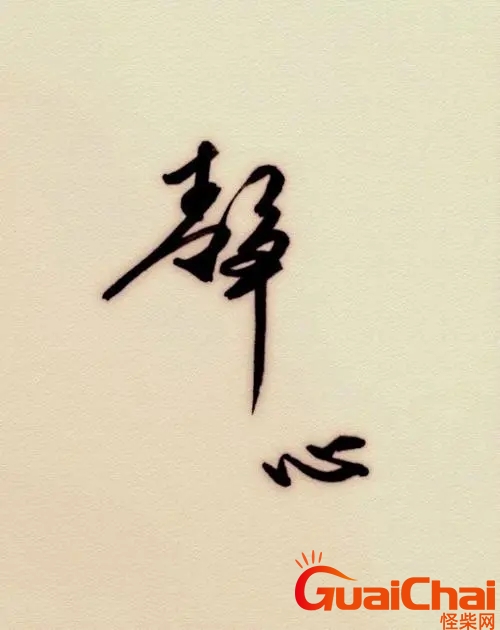 静
心
GuaiChai
怪柴网